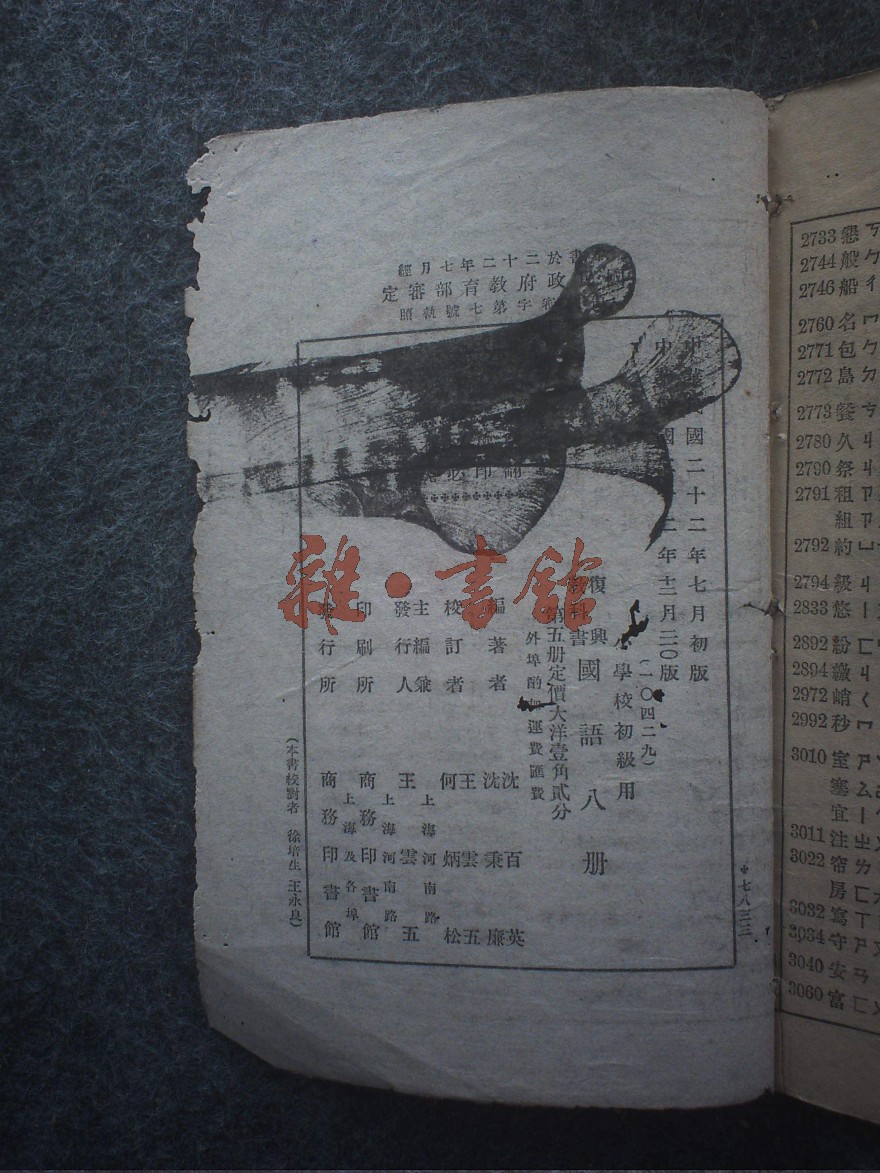 書於二十二年七月經
政府教育部審定
字第七號執照
國二十二年七月初版
年十二月三〇版
(一〇四二九)
學校初級用
復興
教科書
國語八册
第五册定價大洋壹角貳分
外埠酌加運費匯費
翻印必
編著者
沈百英
沈秉廉
校訂者
王雲五
何炳松
主編兼
發行人
上海河南路
王雲五
印刷所
上海河南路
商務印書館
發行所
上海及各埠
商務印書館
(本書校對者 徐培生 王永良)
七八三三
雜·書館
2733 懇 ㄎ
2744 艘 ㄅ
2746 船 ㄔ
2760 名 ㄇ
2771 包 ㄅ
2772 島 ㄉ
2773 餐 ㄘ
2780 久 ㄐ
2790 祭 ㄐ
2791 租 ㄗ
組 ㄗ
2792 約 ㄩ
2794 級 ㄐ
2833 悠 ㄧ
2892 紛 ㄈ
2894 繳 ㄐ
2972 峭 ㄑ
2992 秒 ㄇ
3010 室 ㄕ
塞 ㄙ
宜 ㄧ
3011 注 ㄓ
3022 帘 ㄌ
房 ㄈ
3032 寫 ㄒ
3034 守 ㄕ
3040 安 ㄢ
3060 富 ㄈ